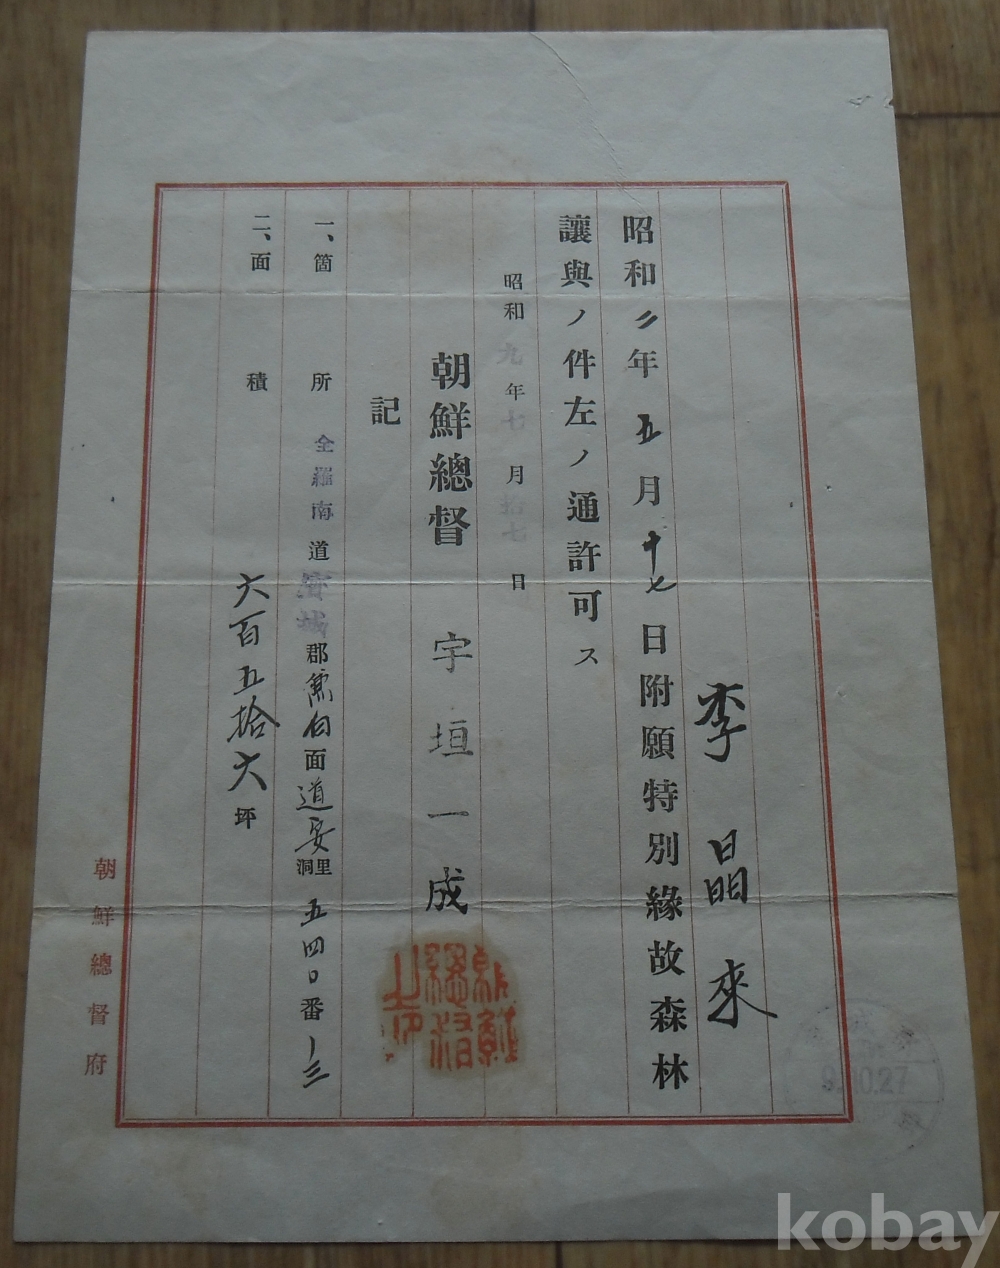 李晶來
昭和二年五月十七日附願特別緣故森林
讓與ノ件左ノ通許可ス
昭和九年七月拾七日
朝鮮總督 宇垣一成
記
一、箇所 全羅南道寶城郡 伯面道安里洞 五四〇番ノ三
二、面積 六百五拾六坪
朝鮮總督之印
朝鮮總督府
9.10.27
kobay